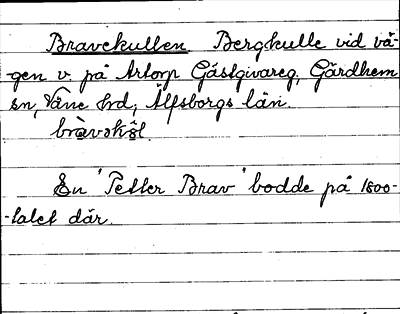 Bravekullen Bergkulle vid vä-
-gen v. på Artorp Gästgivareg, Gärdhem
sn, Väne hd, Älfsborgs län.
En "Petter Brav" bodde på 1800-
-talet där.